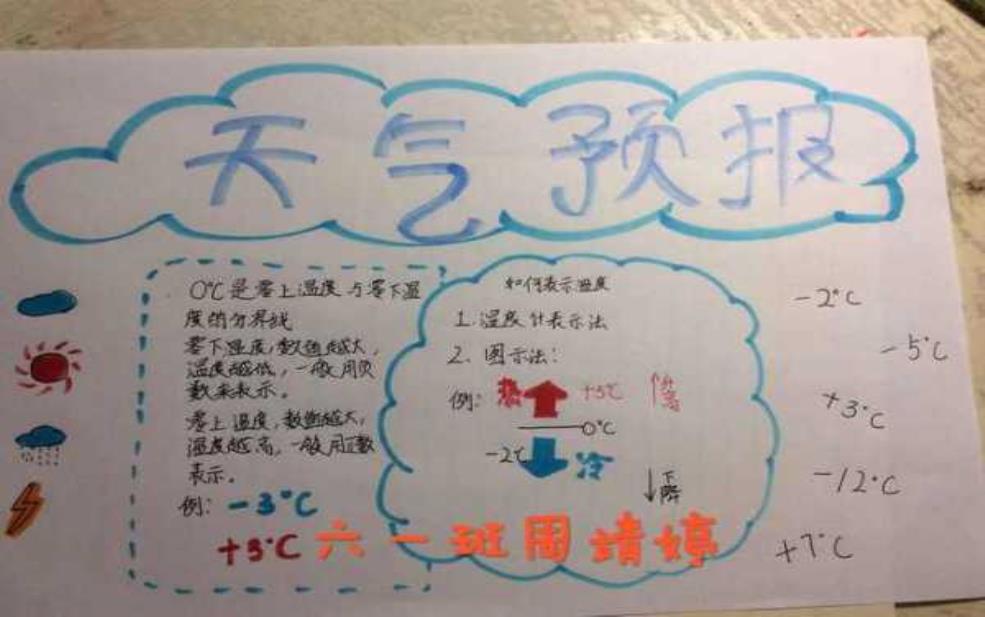 天气预报
0℃是零上温度与零下温
度的分界线
零下温度,数值越大,
温度越低,一般用负
数来表示。
零上温度,数值越大,
温度越高,一般用正数
表示。
例: -3℃
+3℃
如何表示温度
1.温度计表示法
2、图示法:
例: 热 +5℃
0℃
-2℃ 冷
下降
六一班周靖婷
-2℃
-5℃
+3℃
-12℃
+7℃